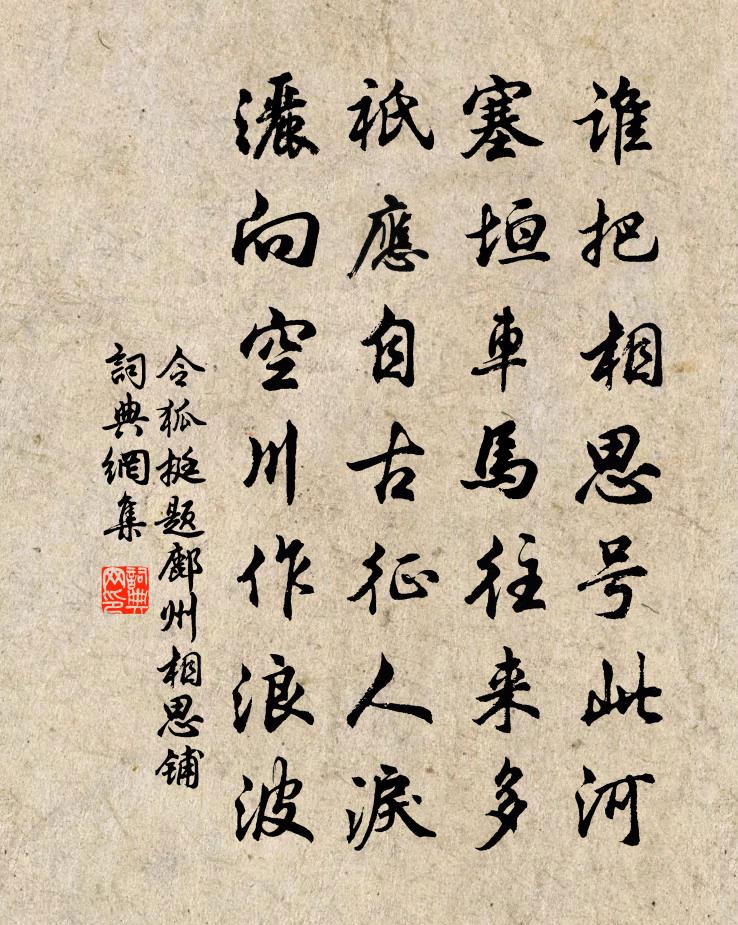 誰把相思号此河
塞垣車馬往来多
祇應自古征人淚
灑向空川作浪波
令狐挺题鄜州相思铺
詞典網集
詞典網印